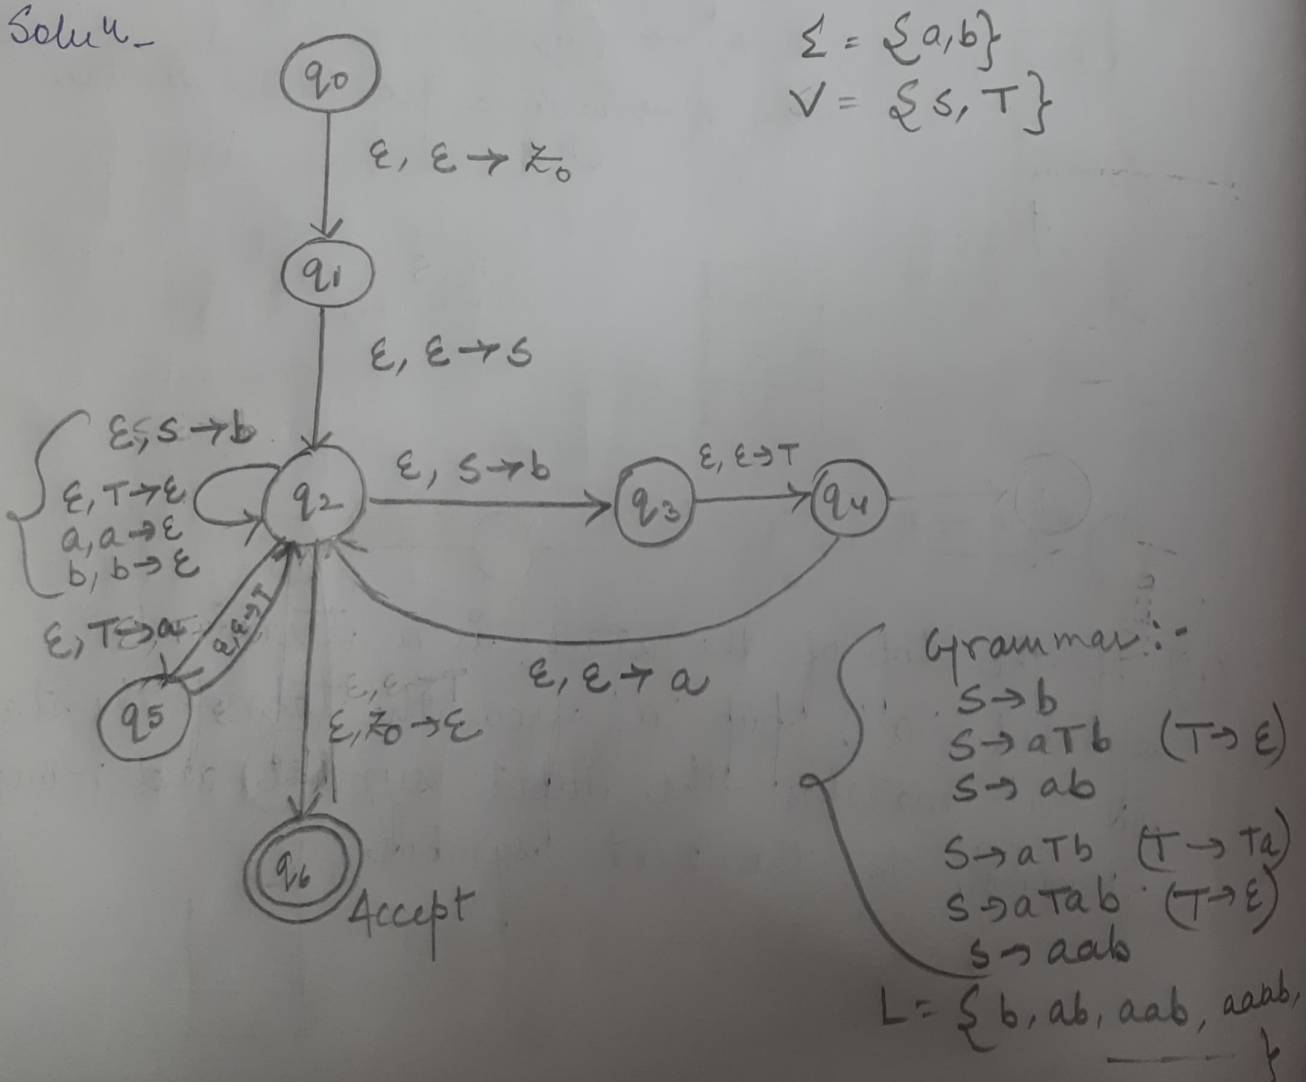 Soluⁿ_
Σ = {a,b}
V = {S, T}
q0
ε, ε → z₀
q1
ε, ε → S
ε, S → b
ε, T → ε
a, a → ε
b, b → ε
q2
ε, S → b
q3
ε, ε → T
q4
ε, T → a
ε, ε → T
q5
ε, ε → a
ε, ε → T
ε, z₀ → ε
q6
Accept
Grammar :-
S → b
S → aTb (T → ε)
S → ab
S → aTb (T → Ta)
S → aTab (T → ε)
S → aab
L = { b, ab, aab, aaab,
}